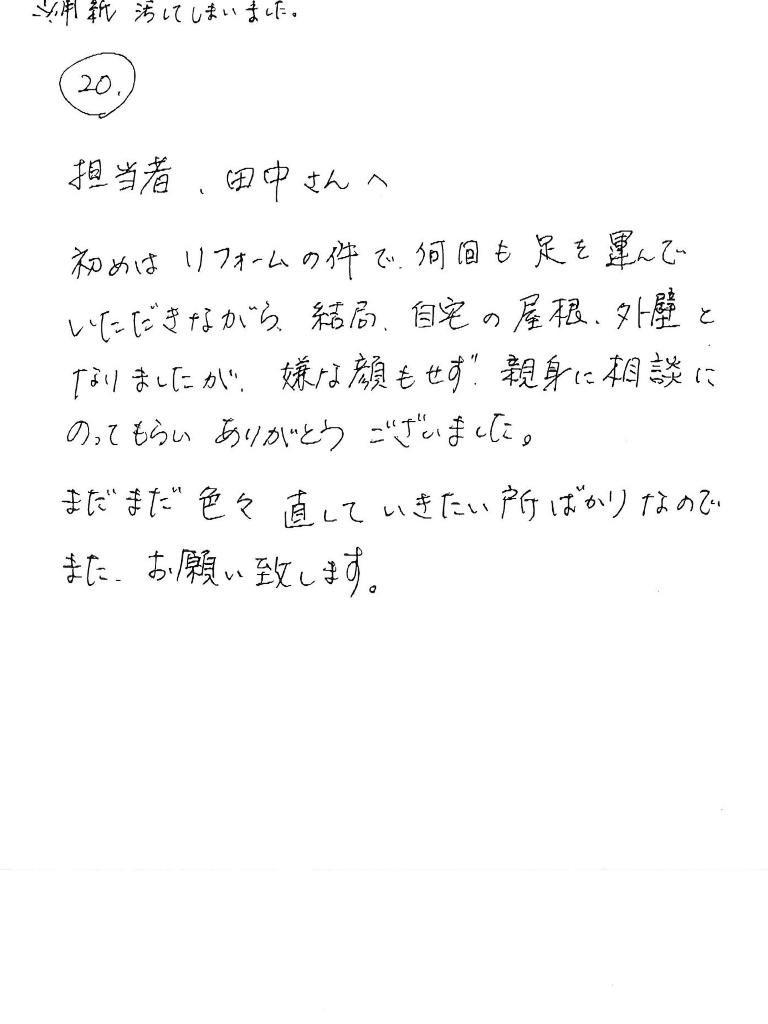 ※用紙 汚してしまいました。
20.
担当者、田中さんへ
初めは リフォームの件で、何回も 足を 運んで
いただきながら、結局、自宅の屋根、外壁と
なりましたが、嫌な顔もせず、親身に相談に
のってもらい ありがとう ございました。
まだまだ 色々 直して いきたい 所ばかりなので
また、お願い致します。